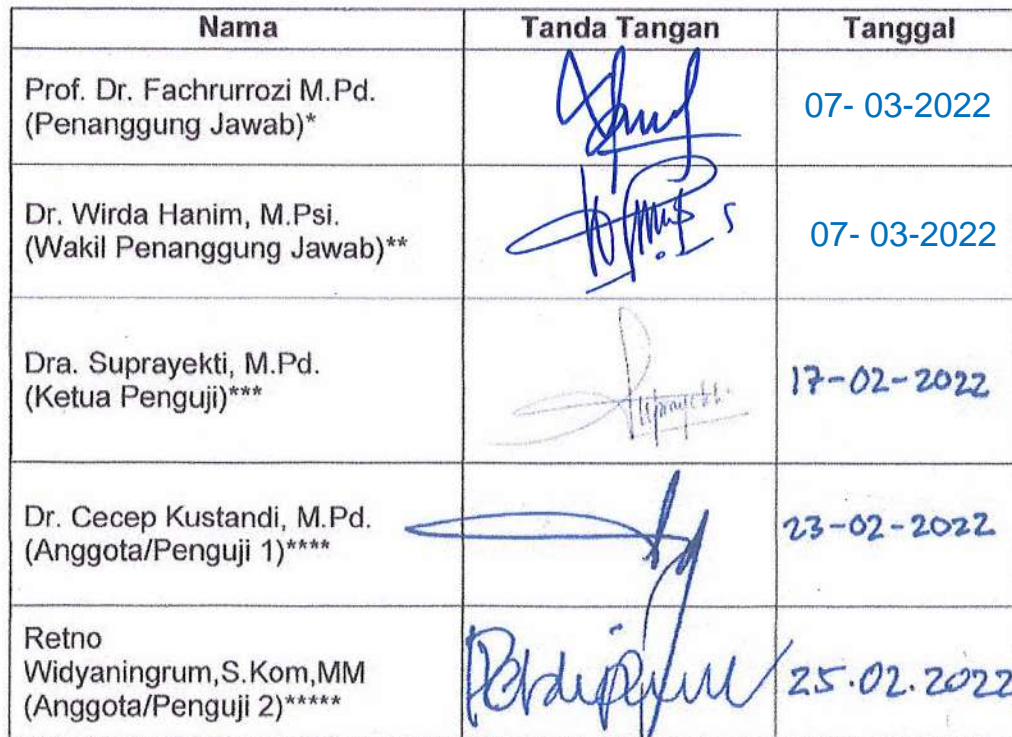 Nama Tanda Tangan Tanggal
Prof. Dr. Fachrurrozi M.Pd.
(Penanggung Jawab)*
07- 03-2022
Dr. Wirda Hanim, M.Psi.
(Wakil Penanggung Jawab)**
07- 03-2022
Dra. Suprayekti, M.Pd.
(Ketua Penguji)***
17-02-2022
Dr. Cecep Kustandi, M.Pd.
(Anggota/Penguji 1)****
23-02-2022
Retno
Widyaningrum,S.Kom,MM
(Anggota/Penguji 2)*****
25.02.2022